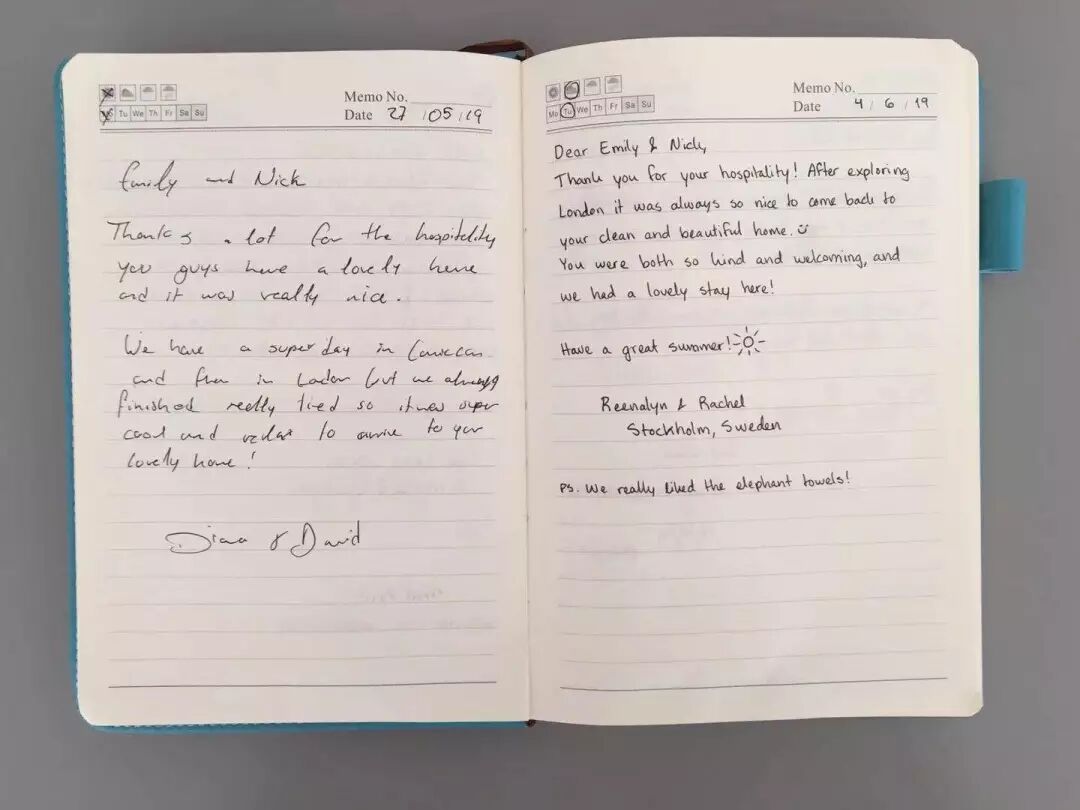 Mo Tu We Th Fr Sa Su
Memo No.
Date 27 / 05 / 19
Emily and Nick
Thanks a lot for the hospitality
you guys have a lovely home
and it was really nice.
We have a super day in
and then in London but we always
finished really tired so it was super
cool and relax to arrive to your
lovely home!
Diana & David
Mo Tu We Th Fr Sa Su
Memo No.
Date 4 / 6 / 19
Dear Emily & Nick,
Thank you for your hospitality! After exploring
London it was always so nice to come back to
your clean and beautiful home.
You were both so kind and welcoming, and
we had a lovely stay here!
Have a great summer!
Reenalyn & Rachel
Stockholm, Sweden
PS. We really liked the elephant towels!